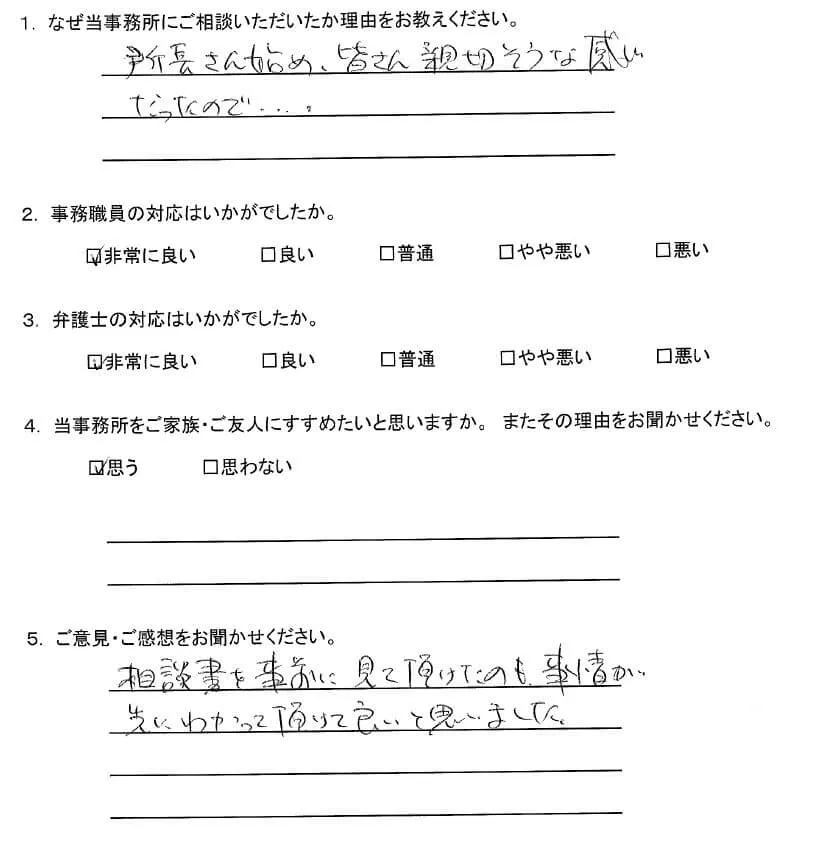 1. なぜ当事務所にご相談いただいたか理由をお教えください。
所長さん始め、皆さん親切そうな感じ
だったので・・・。
2. 事務職員の対応はいかがでしたか。
☑非常に良い □良い □普通 □やや悪い □悪い
3. 弁護士の対応はいかがでしたか。
☑非常に良い □良い □普通 □やや悪い □悪い
4. 当事務所をご家族・ご友人にすすめたいと思いますか。 またその理由をお聞かせください。
☑思う □思わない
5. ご意見・ご感想をお聞かせください。
相談書を事前に見て頂けたのも、事情が
先にわかって頂けて良いと思いました。